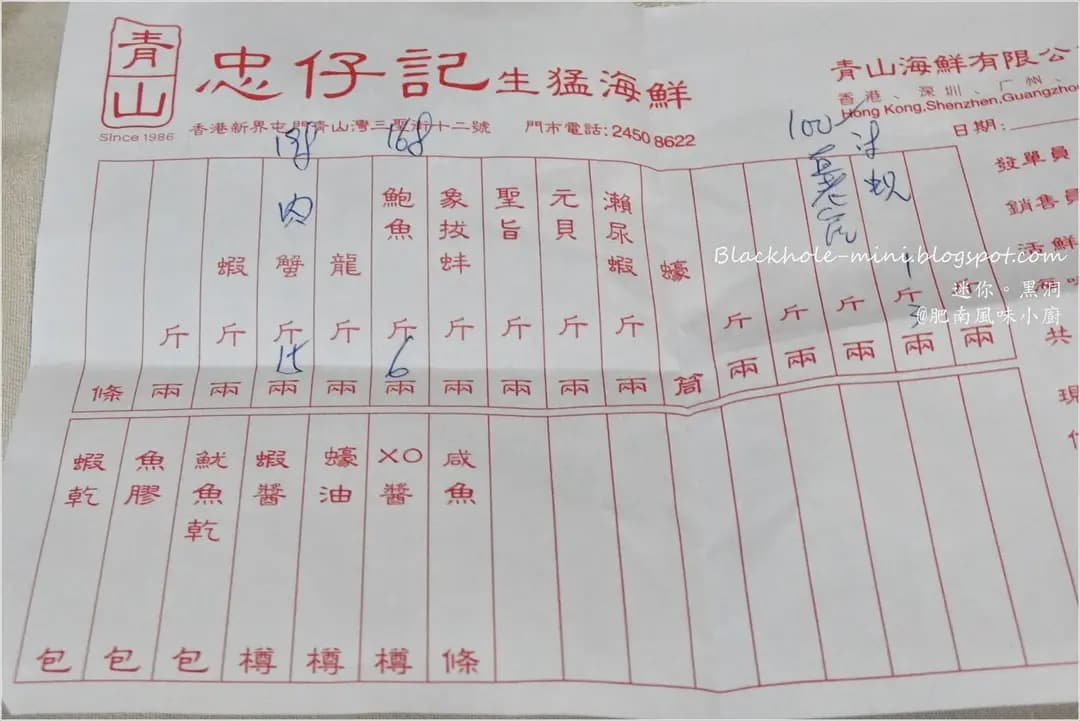 青山
Since 1986
忠仔記生猛海鮮
香港新界屯門青山灣三聖街十二號 門市電話: 2450 8622
青山海鮮有限公
香港、深圳、广州、
Hong Kong, Shenzhen, Guangzhou
日期:
發單員
銷售員
活鮮
共
現
168
100
條
斤兩
蝦斤兩
肉蟹斤15兩
龍斤兩
鮑魚斤6兩
象拔蚌斤兩
聖旨斤兩
元貝斤兩
瀨尿蝦斤兩
蠔筒
斤兩
斤兩
斤兩
1斤3兩
兩
蝦乾包
魚膠包
魷魚乾包
蝦醬樽
蠔油樽
XO醬樽
咸魚條
Blackhole-mini.blogspot.com
迷你。黑洞
@肥南風味小廚